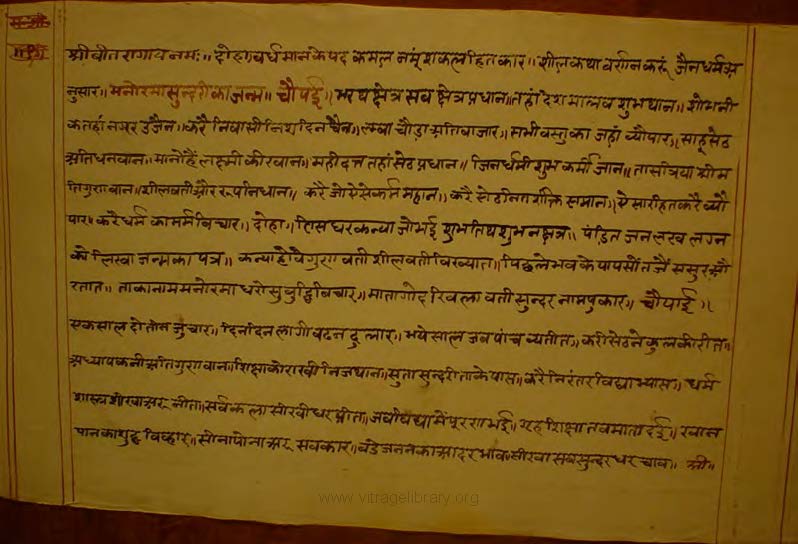 श्रीवीतरागाय नमः॥ दोहा॥ वर्धमान के पद कमल नमूं शकल हितकार॥ शील कथा वर्णन करूं जैन धर्म अ
नुसार॥ मनोरमा सुन्दरी का जन्म॥ चौपई॥ भरथ क्षेत्र सव क्षेत्र प्रधान॥ तहां देश मालव शुभ थान॥ शोभनी
क तहां नगर उजैन॥ करै निवासी निशदिन चैन॥ लम्वा चौड़ा अति वाजार॥ सभी वस्तु का जहां व्यौपार॥ साहू सेठ
अति धनवान॥ मानों हैं लक्ष्मी की खान॥ महीदत्त तहां सेठ प्रधान॥ जिनधर्मी शुभ कर्मी जान॥ तास त्रिया श्रीम
ति गुणवान॥ शीलवती और रूप निधान॥ करै जो ऐसे कर्त महान॥ करै सेठ नित शक्ति समान॥ ऐसा रहित करै व्यौ
पार॥ करै धर्म का मर्म विचार॥ दोहा॥ तिस घर कन्या जो भई शुभ तिथ शुभ नक्षत्र॥ पंडित जन लख लग्न
को लिखा जन्म का पत्र॥ कन्या होवे गुणवती शीलवती विख्यात॥ पिछले भव के पाप सों तजैं ससुर औ
र तात॥ ताका नाम मनोरमा धरो सुवुद्धि विचार॥ माता गोद खिलावती सुन्दर नाम पुकार॥ चौपाई॥
एक साल दो तीन जु चार॥ दिन दिन लागी वढन दुलार॥ भये साल जव पांच व्यतीत॥ करी सेठ ने कुल की रीत॥
अध्यापकनी अति गुणवान॥ शिक्षा को राखी निज थान॥ सुता सुन्दरी ताके पास॥ करै निरंतर विद्याभ्यास॥ धर्म
शास्त्र शीखा अरु नीत॥ सर्व कला सीखी धर प्रीत॥ जव विद्या में पूरण भई॥ गृह शिक्षा तव माता दई॥ खान
पान का शुद्ध विव्हार॥ सीना पोना अरु सव कार॥ वडे जनन का आदर भाव॥ सीखा सव सुन्दर धर चाव॥ श्री॥
www.vitragelibrary.org